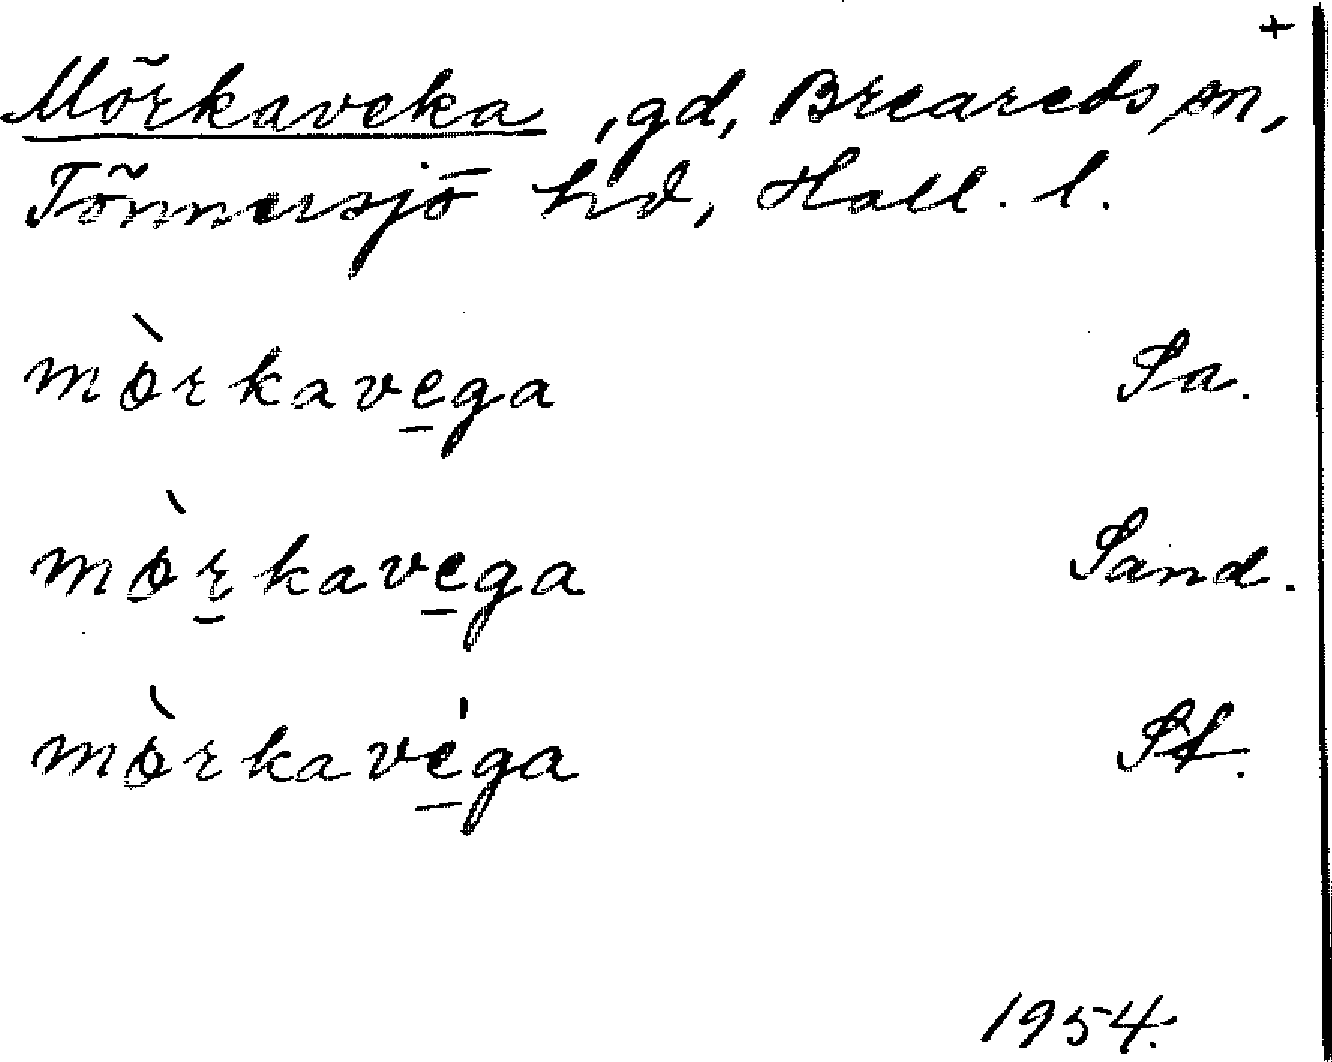 +
Mörkaveka, gd, Breareds sn,
Tönnersjö hd, Hall. l.
mò̱rkave̱ga Sa.
mò̱r̮kave̱ga Sand.
mò̱rkavé̱ga St.
1954.